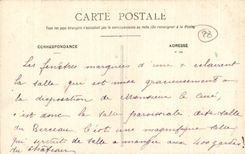 CARTE POSTALE
Tous les pays étrangers n'acceptent pas la correspondance au recto (Se renseigner à la Poste)
CORRESPONDANCE
ADRESSE
Les fenêtres marquées d'une x éclairent
la salle qui est mise gracieusement à
la disposition de Monsieur le Curé,
c'est donc la salle paroissiale dite salle
du Berceau. C'est une magnifique salle
qui servait de salle à manger aux 400 gardes
du château